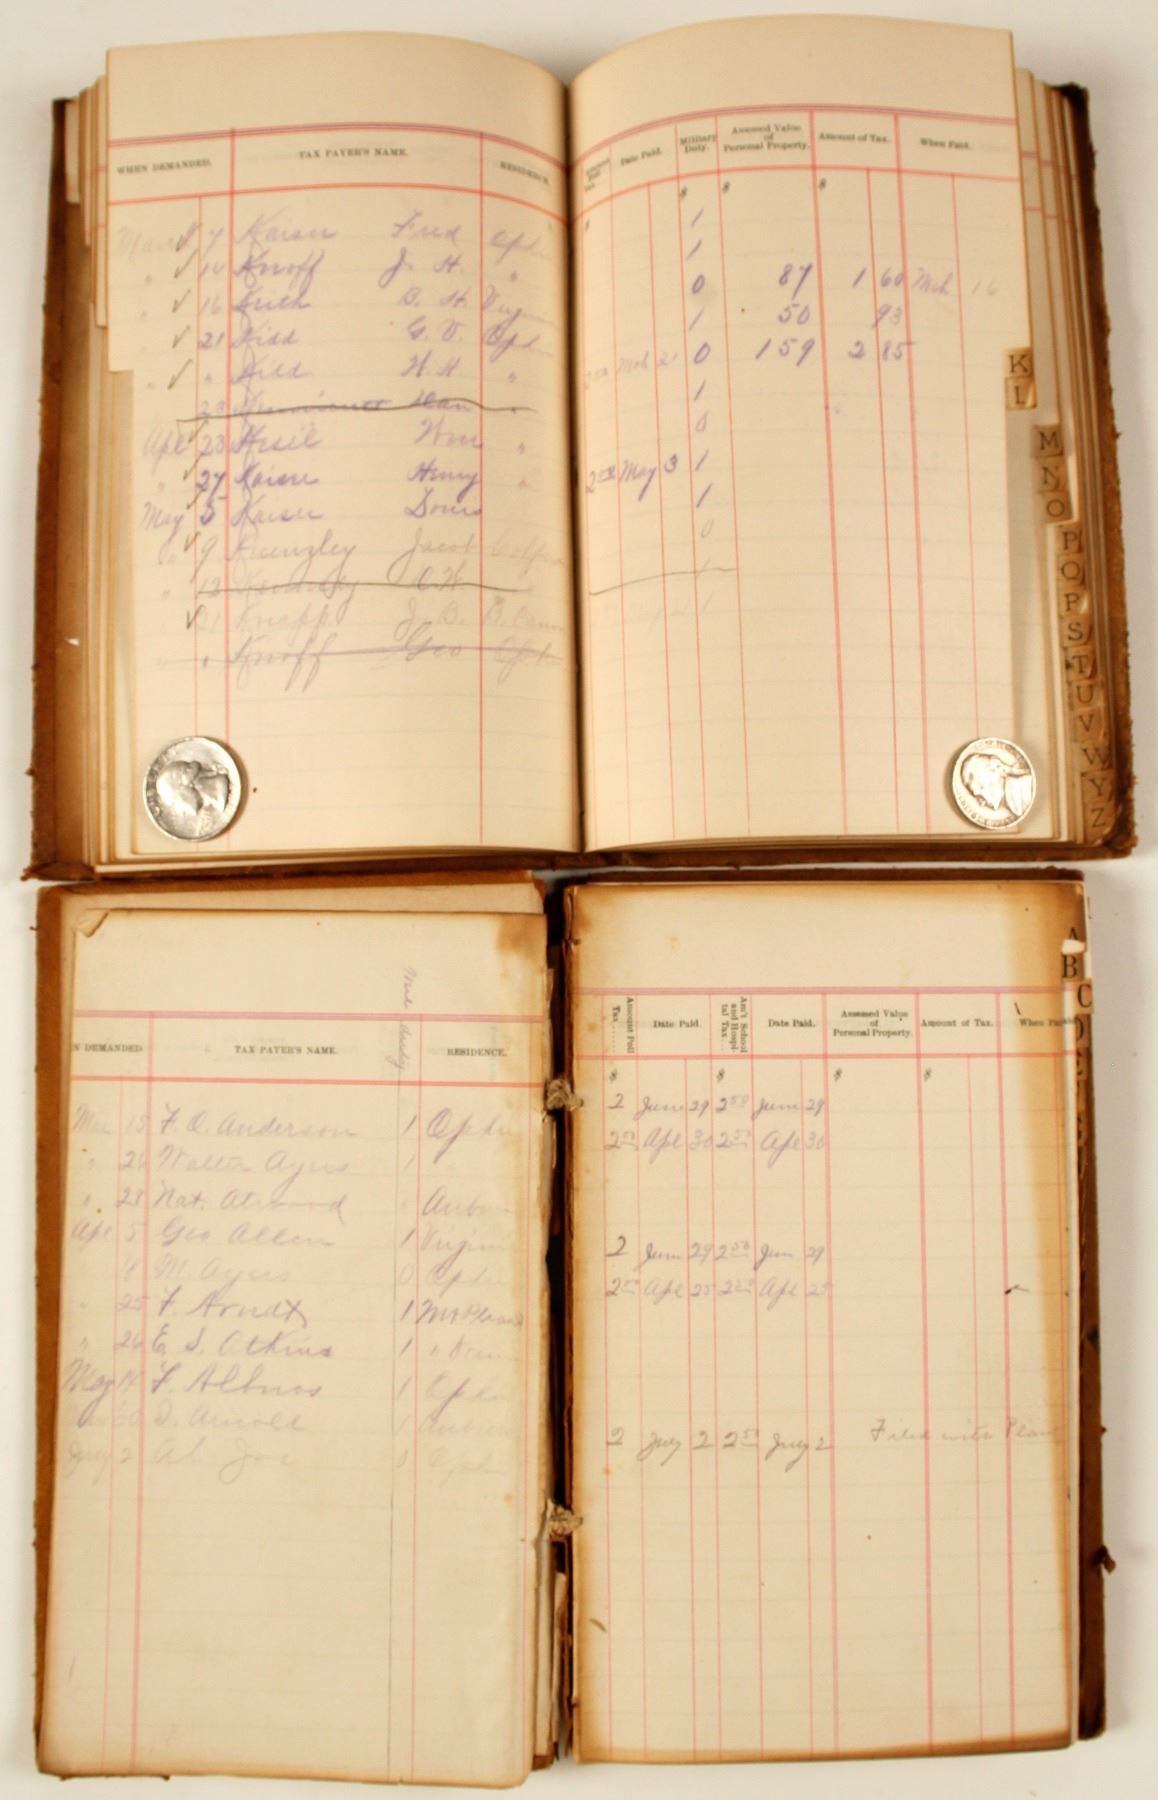 WHEN DEMANDED. TAX PAYER'S NAME. RESIDENCE. Amount Poll Tax. Date Paid. Military Duty. Assessed Value of Personal Property. Amount of Tax. When Paid.
$ $ $
March 7 Kaiser Fred Ophir 1
" 14 Knoff J. H. " 1
" 16 Keith B. H. Virginia 0 87 1 60 Mch 16
" 21 Kidd G. V. Ophir 1 50 93
" " Kidd H. H. " Mch 21 0 159 2 85
23 Han " 1
Apl 23 Wm " 0
" 27 Kaiser Henry " 2 50 May 3 1
May 5 Kaiser Louis 1
" 9 Kuenzley Jacob Colfax 0
" 12 Kennedy
21 Knapp J. B. 1
" Knoff Geo Ophir
K
L
M
N
O
P
Q
R
S
T
U
V
W
Y
Z
N DEMANDED TAX PAYER'S NAME. Mil duty RESIDENCE. Amount Poll Tax Date Paid. Am't School and Hospital Tax Date Paid. Assessed Value of Personal Property. Amount of Tax. When Paid
$ $ $ $
Mar 15 F. O. Anderson 1 Ophir 2 June 29 2 50 June 29
" 26 Walter Ayers 1 2 50 Apl 30 2 50 Apl 30
" 28 Nat. Atwood Auburn
Apl 5 Geo Allen 1 Virginia
M. Ayers 0 Ophir 2 June 29 2 50 Jun 29
" 25 F. Arndt 1 Mt Pleasant 2 50 Apl 25 2 50 Apl 25
" 26 E. S. Atkins 1 "
May 14 F. Albnos 1 Ophir
Arnold 1 Auburn
July 2 Ah Joe 0 Ophir 2 July 2 2 50 July 2 Filed with
A
B
C
D